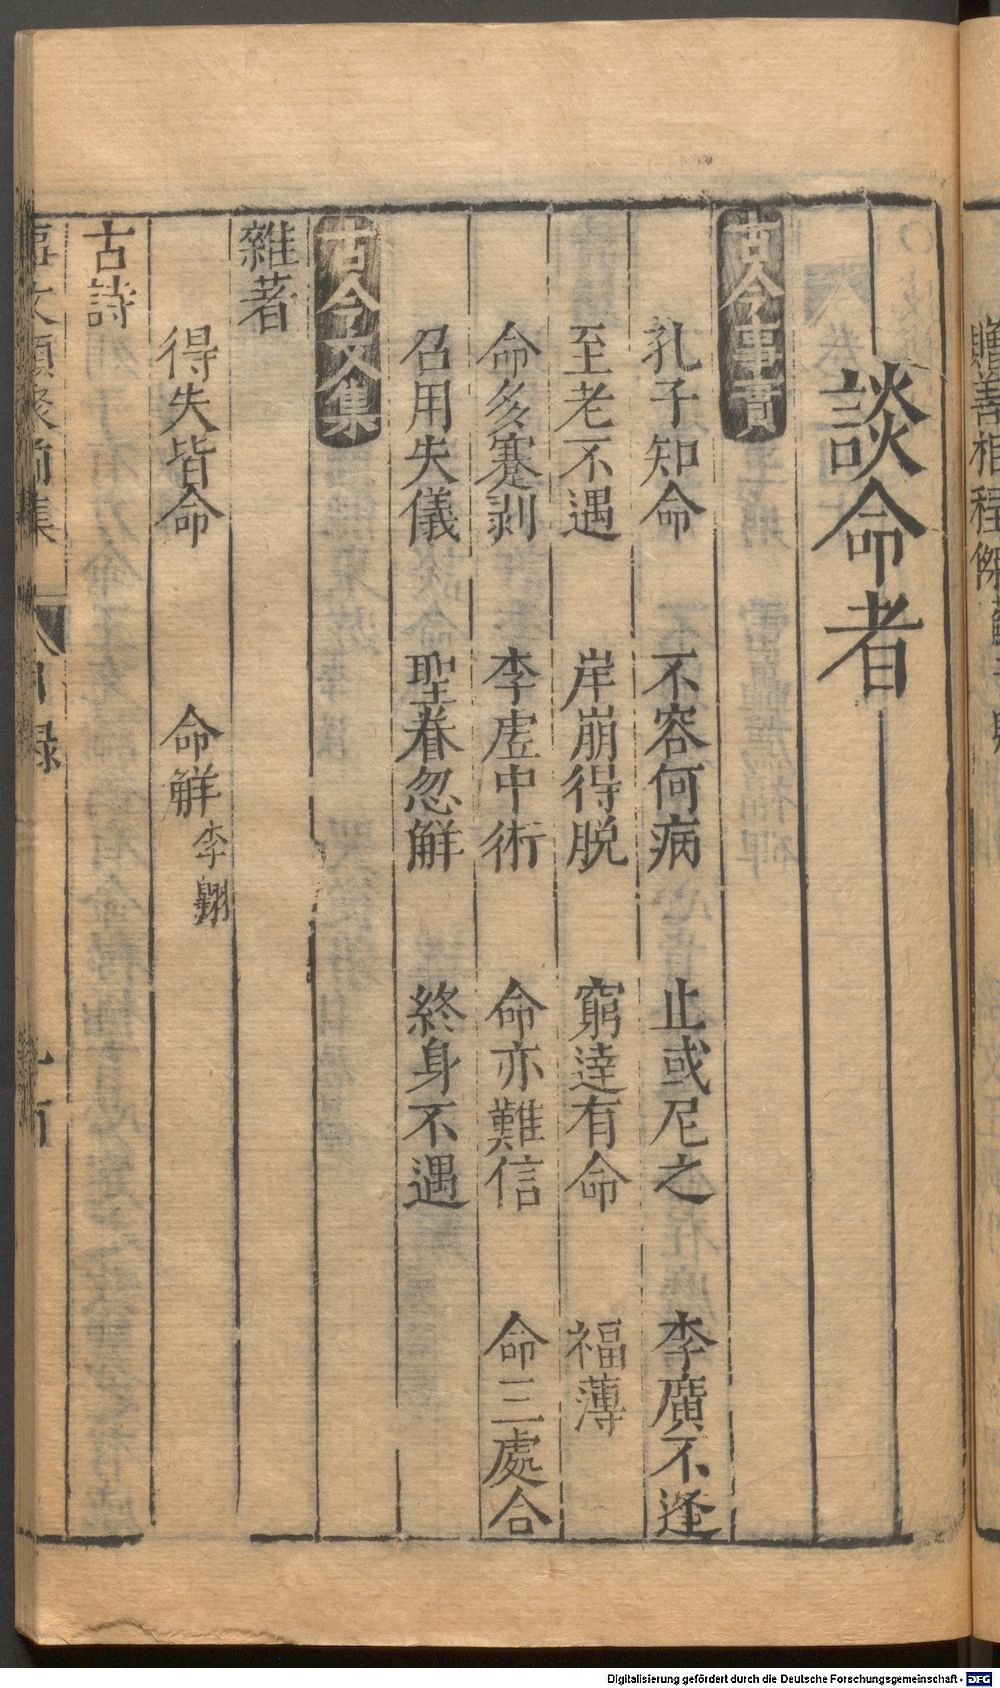 談命者
古今事實
孔子知命 不容何病 止或尼之 李廣不逢
至老不遇 岸崩得脱 窮達有命 福薄
命多蹇剥 李虛中術 命亦難信 命三處合
召用失儀 聖眷忽解 終身不遇
古今文集
雜著
得失皆命 命解李翺
古詩
目録
贈善相程傑
Digitalisierung gefördert durch die Deutsche Forschungsgemeinschaft - DFG